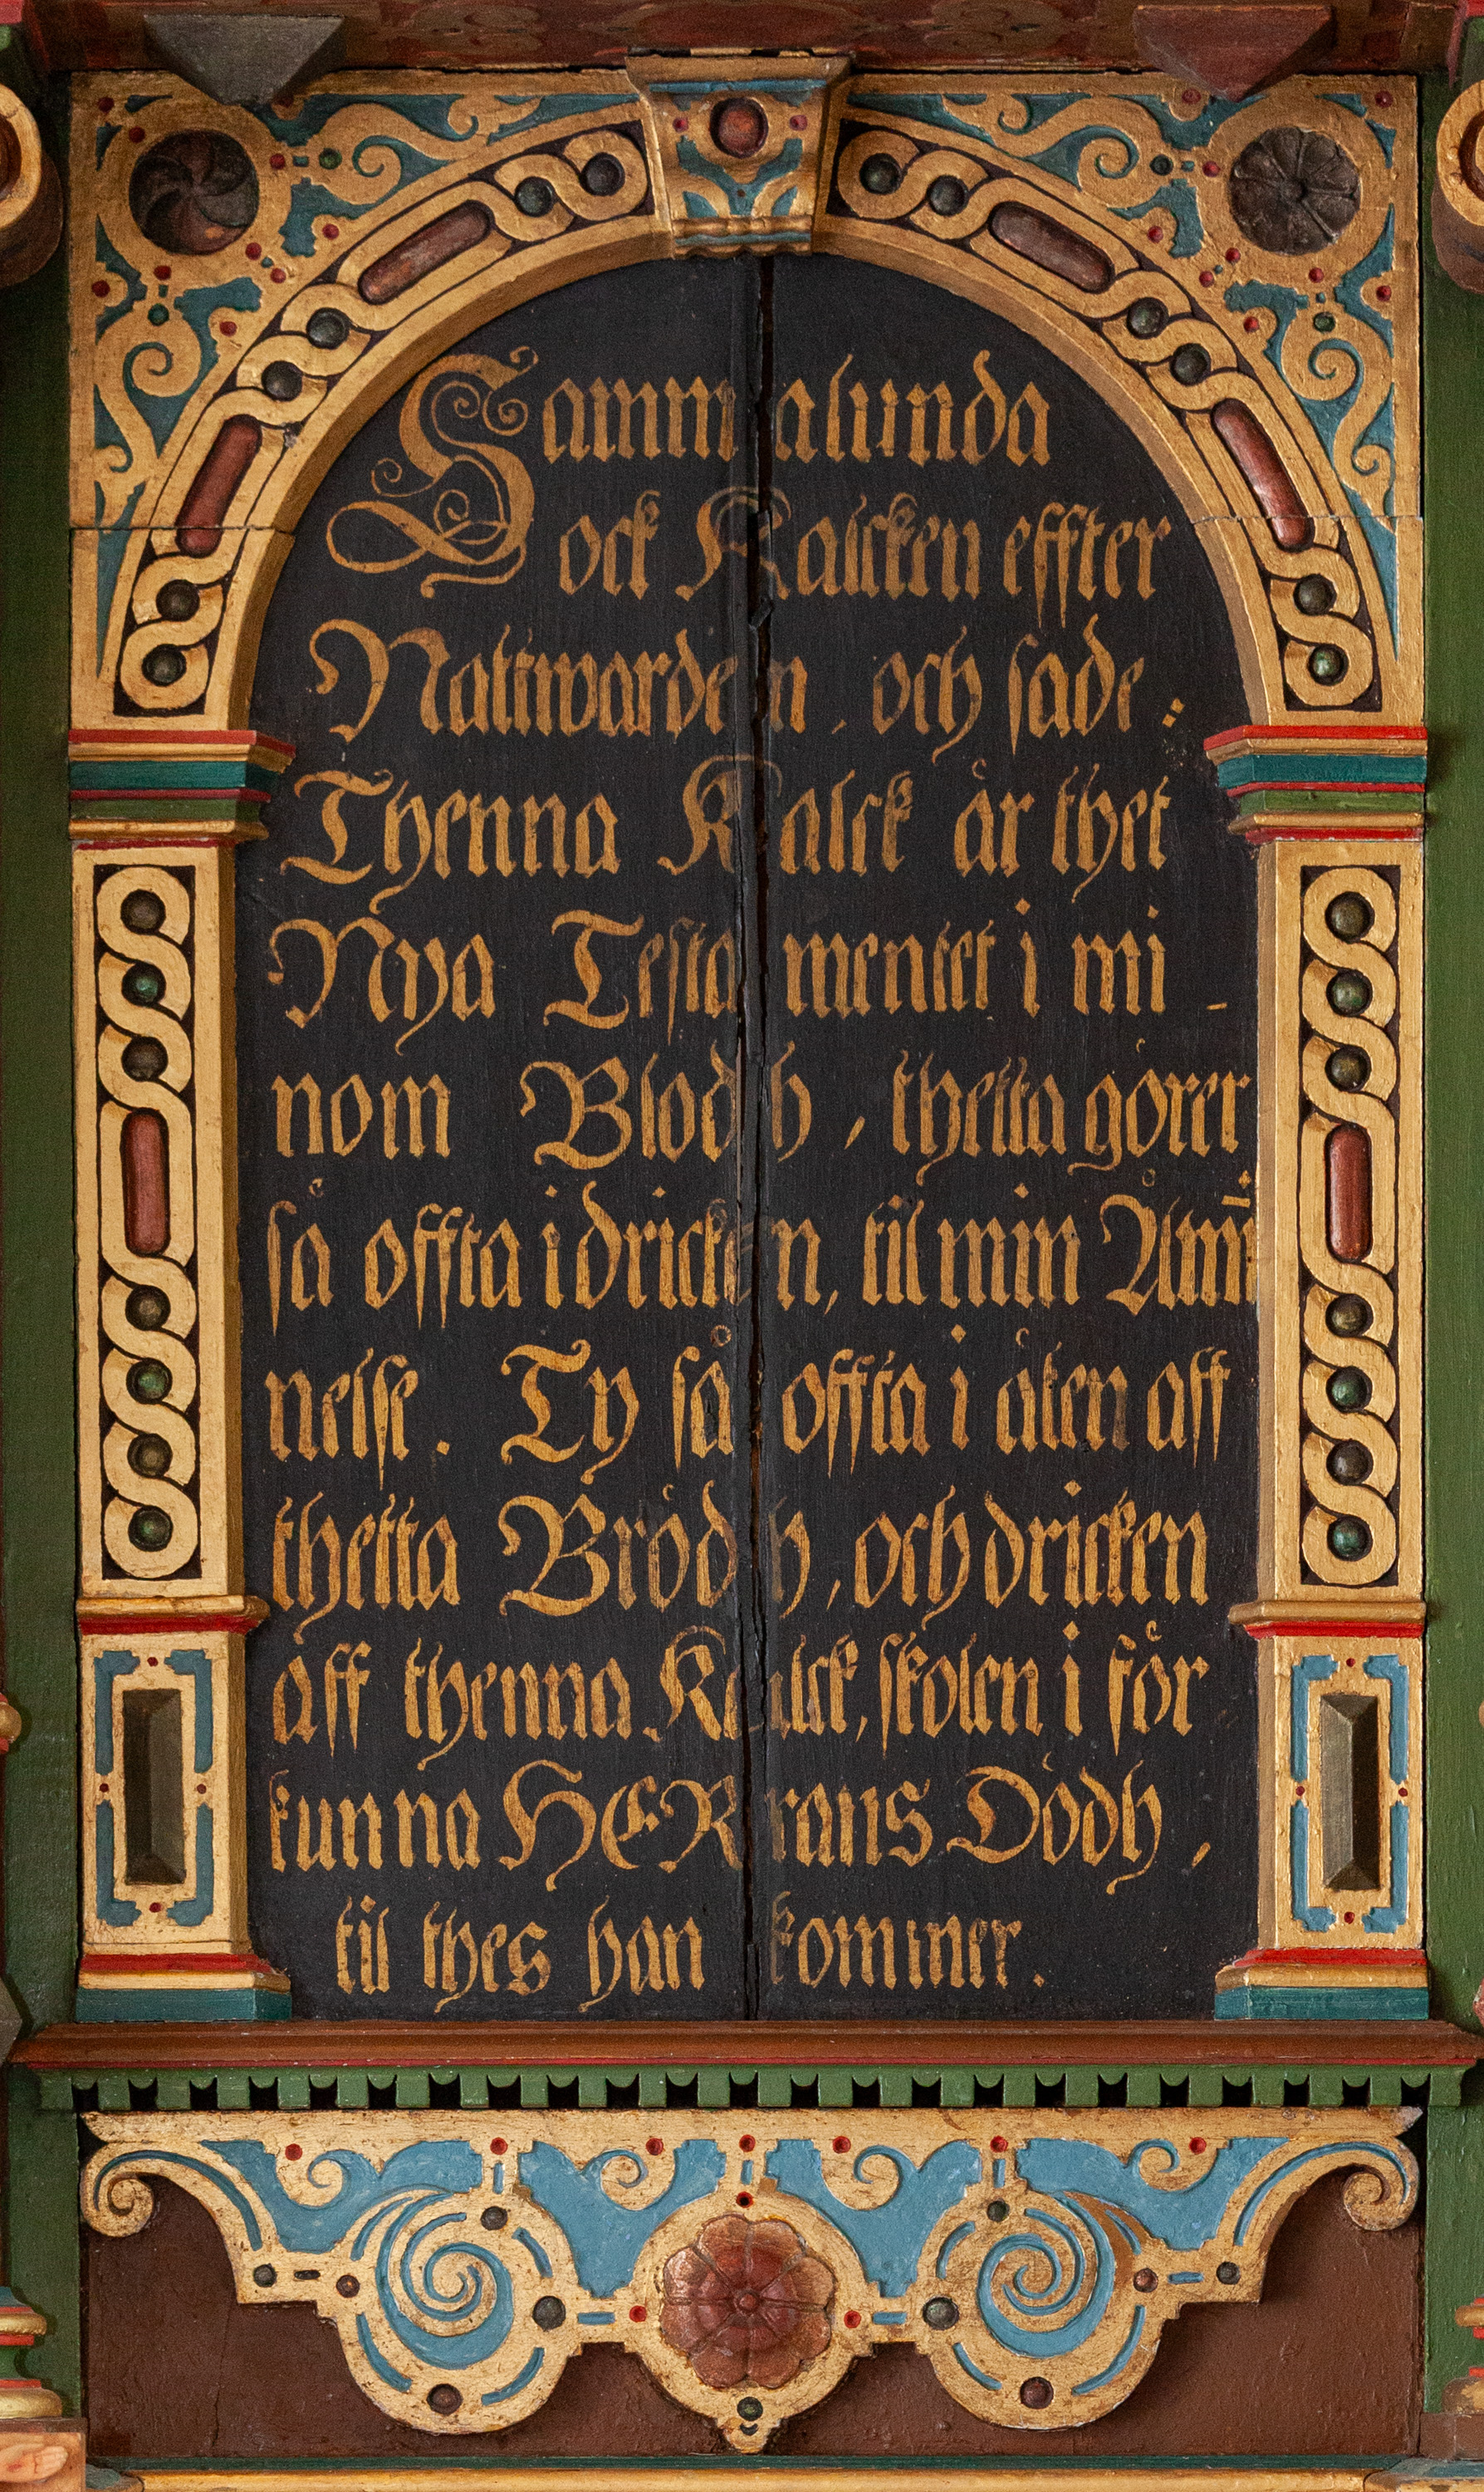 Sammalunda
ock Kalcken effter
Nattwarden, och sade:
Thenna Kalck är thet
Nya Testamentet i mi-
nom Blodh, thetta görer
så offta i dricken, til min Åm̄i
nelse. Ty så offta i äten aff
thetta Brödh, och dricken
aff thenna Kalck, skolen i för
kunna HERrans Dödh,
til thes han kommer.